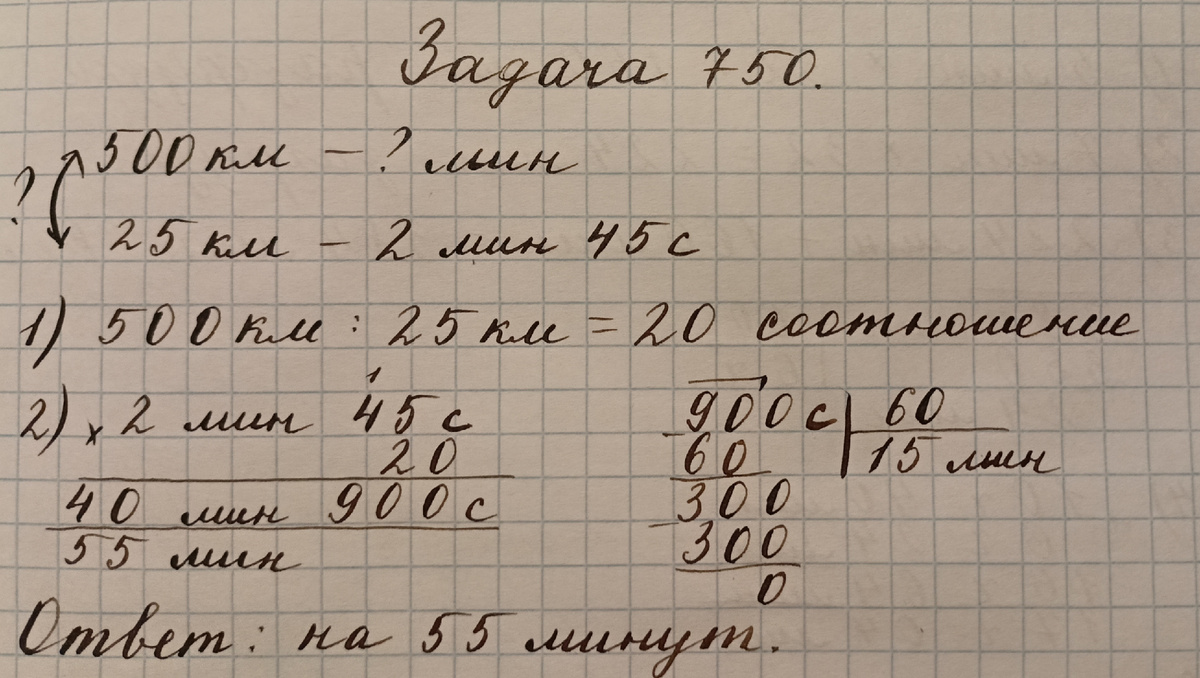 Задача 750.
500 км – ? мин
?
25 км – 2 мин 45 с
1) 500 км : 25 км = 20 соотношение
1
2) x 2 мин 45 с
20
40 мин 900 с
55 мин
900 с 60
- 60 15 мин
- 300
300
0
Ответ: на 55 минут.